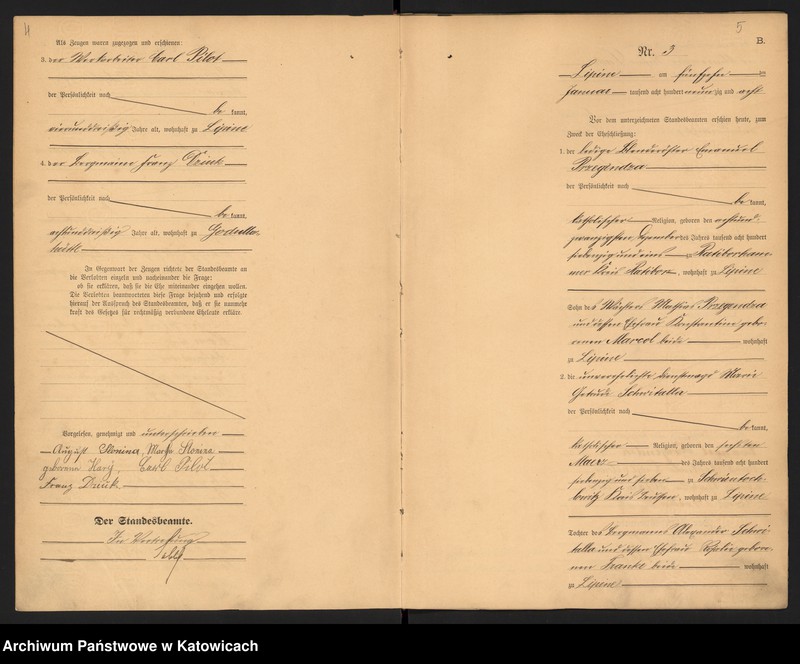 4
Als Zeugen waren zugezogen und erschienen:
3. der Werkarbeiter Carl Pilot
der Persönlichkeit nach
be kannt,
vierunddreißig Jahre alt, wohnhaft zu Lipine
4. der Bergmann Franz
der Persönlichkeit nach
be kannt,
achtunddreißig Jahre alt, wohnhaft zu Godulla-
hütte
In Gegenwart der Zeugen richtete der Standesbeamte an
die Verlobten einzeln und nacheinander die Frage:
ob sie erklären, daß sie die Ehe miteinander eingehen wollen.
Die Verlobten beantworteten diese Frage bejahend und erfolgte
hierauf der Ausspruch des Standesbeamten, daß er sie nunmehr
kraft des Gesetzes für rechtmäßig verbundene Eheleute erkläre.
Vorgelesen, genehmigt und unterschrieben
August Slonina, Marie Slonina
geborene Carl Pilot
Franz
Der Standesbeamte.
In Vertretung
5
B.
Nr. 3
Lipine am fünfzehn ten
Januar tausend acht hundert neunzig und acht
Vor dem unterzeichneten Standesbeamten erschien heute, zum
Zweck der Eheschließung:
1. der ledige Emanuel
Przegendza
der Persönlichkeit nach
be kannt,
katholischer Religion, geboren den achtund-
zwanzigsten Dezember des Jahres tausend acht hundert
siebenzig und eins zu Ratiborham-
mer Kreis Ratibor, wohnhaft zu Lipine
Sohn des Mathias Przegendza
und dessen Ehefrau Konstantine gebo-
renen Marcol beide wohnhaft
zu Lipine
2. die unverehelichte Dienstmagd Marie
Gertrude Schwitalla
der Persönlichkeit nach
be kannt,
katholischer Religion, geboren den sechsten
Maerz des Jahres tausend acht hundert
siebenzig und sieben zu Schwientoch-
lowitz Kreis Beuthen, wohnhaft zu Lipine
Tochter des Bergmanns Alexander Schwi-
talla und dessen Ehefrau Rosalie gebore-
nen Franke beide wohnhaft
zu Lipine
Archiwum Państwowe w Katowicach